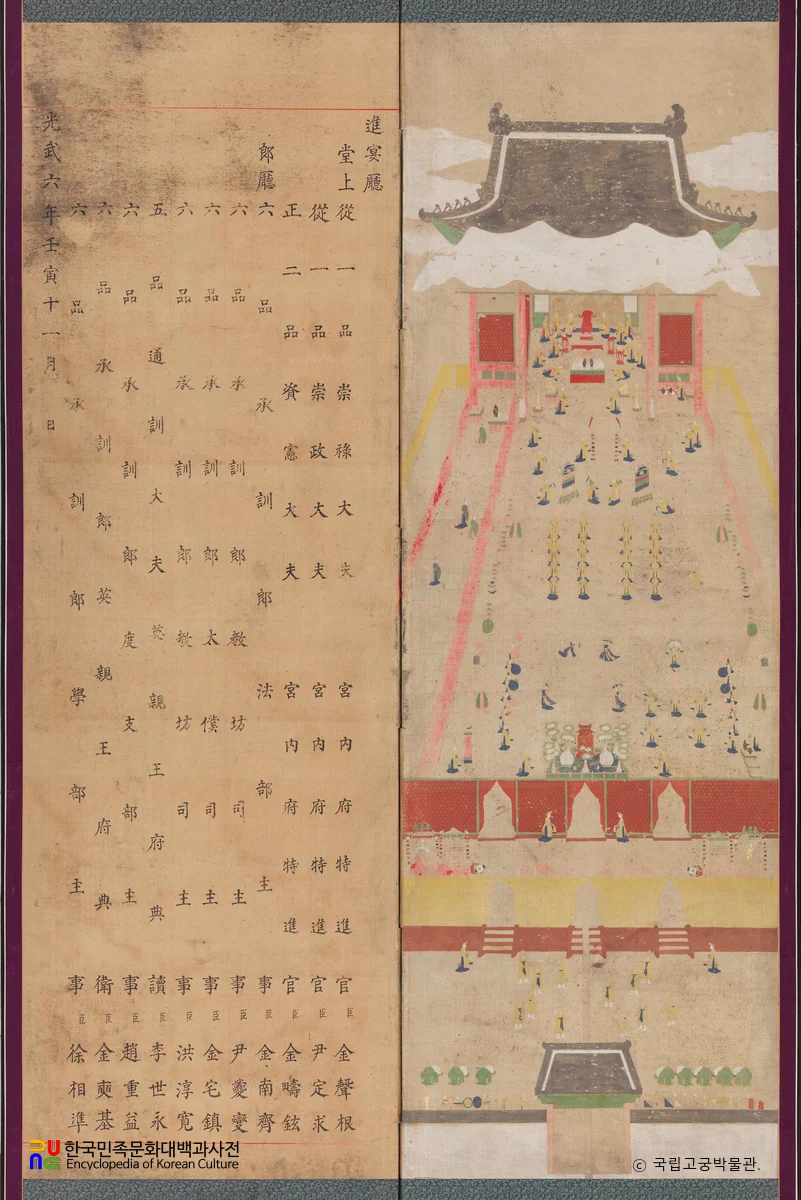 進宴廳
堂上從一品崇祿大夫宮內府特進官臣金聲根
從一品崇政大夫宮內府特進官臣尹定求
正二品資憲大夫宮內府特進官臣金疇鉉
郎廳六品承訓郎法部主事臣金南齊
六品承訓郎教坊司主事臣尹夔燮
六品承訓郎太僕司主事臣金宅鎮
六品承訓郎教坊司主事臣洪淳寬
五品通訓大夫英親王府典讀臣李世永
六品承訓郎度支部主事臣趙重益
六品承訓郎英親王府典衛臣金奭基
六品承訓郎學部主事臣徐相準
光武六年壬寅十一月 日
한국민족문화대백과사전
Encyclopedia of Korean Culture
© 국립고궁박물관.